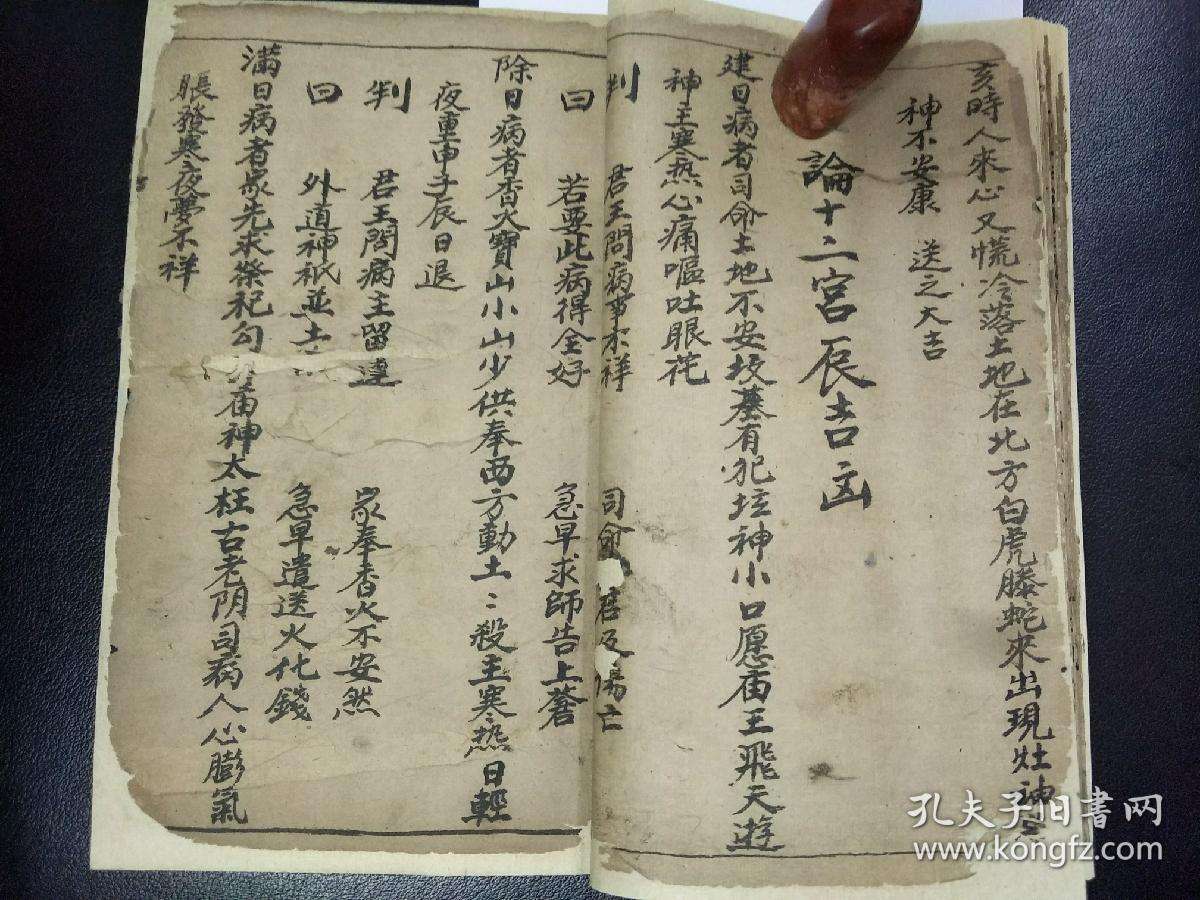 亥時人來心又慌冷落土地在北方白虎螣蛇來出現灶神
神不安康 送之大吉
論十二宮辰吉凶
建日病者司命土地不安坟墓有犯坟神小口愿庙王飛天遊
神主寒热心痛嘔吐眼花
判 君王問病事不祥 司命 君及傷亡
曰 若要此病得全好 急早求師告上蒼
除日病者香火寶山小山少供奉西方動土〻殺主寒热日輕
夜重申子辰日退
判 君王問病主留連 家奉香火不安然
曰 外道神祇並土 急早遣送火化錢
滿日病者家先求祭祀勾 庙神太枉古老阴司病人心膨氣
脹發寒夜夢不祥
孔夫子旧书网
www.kongfz.com